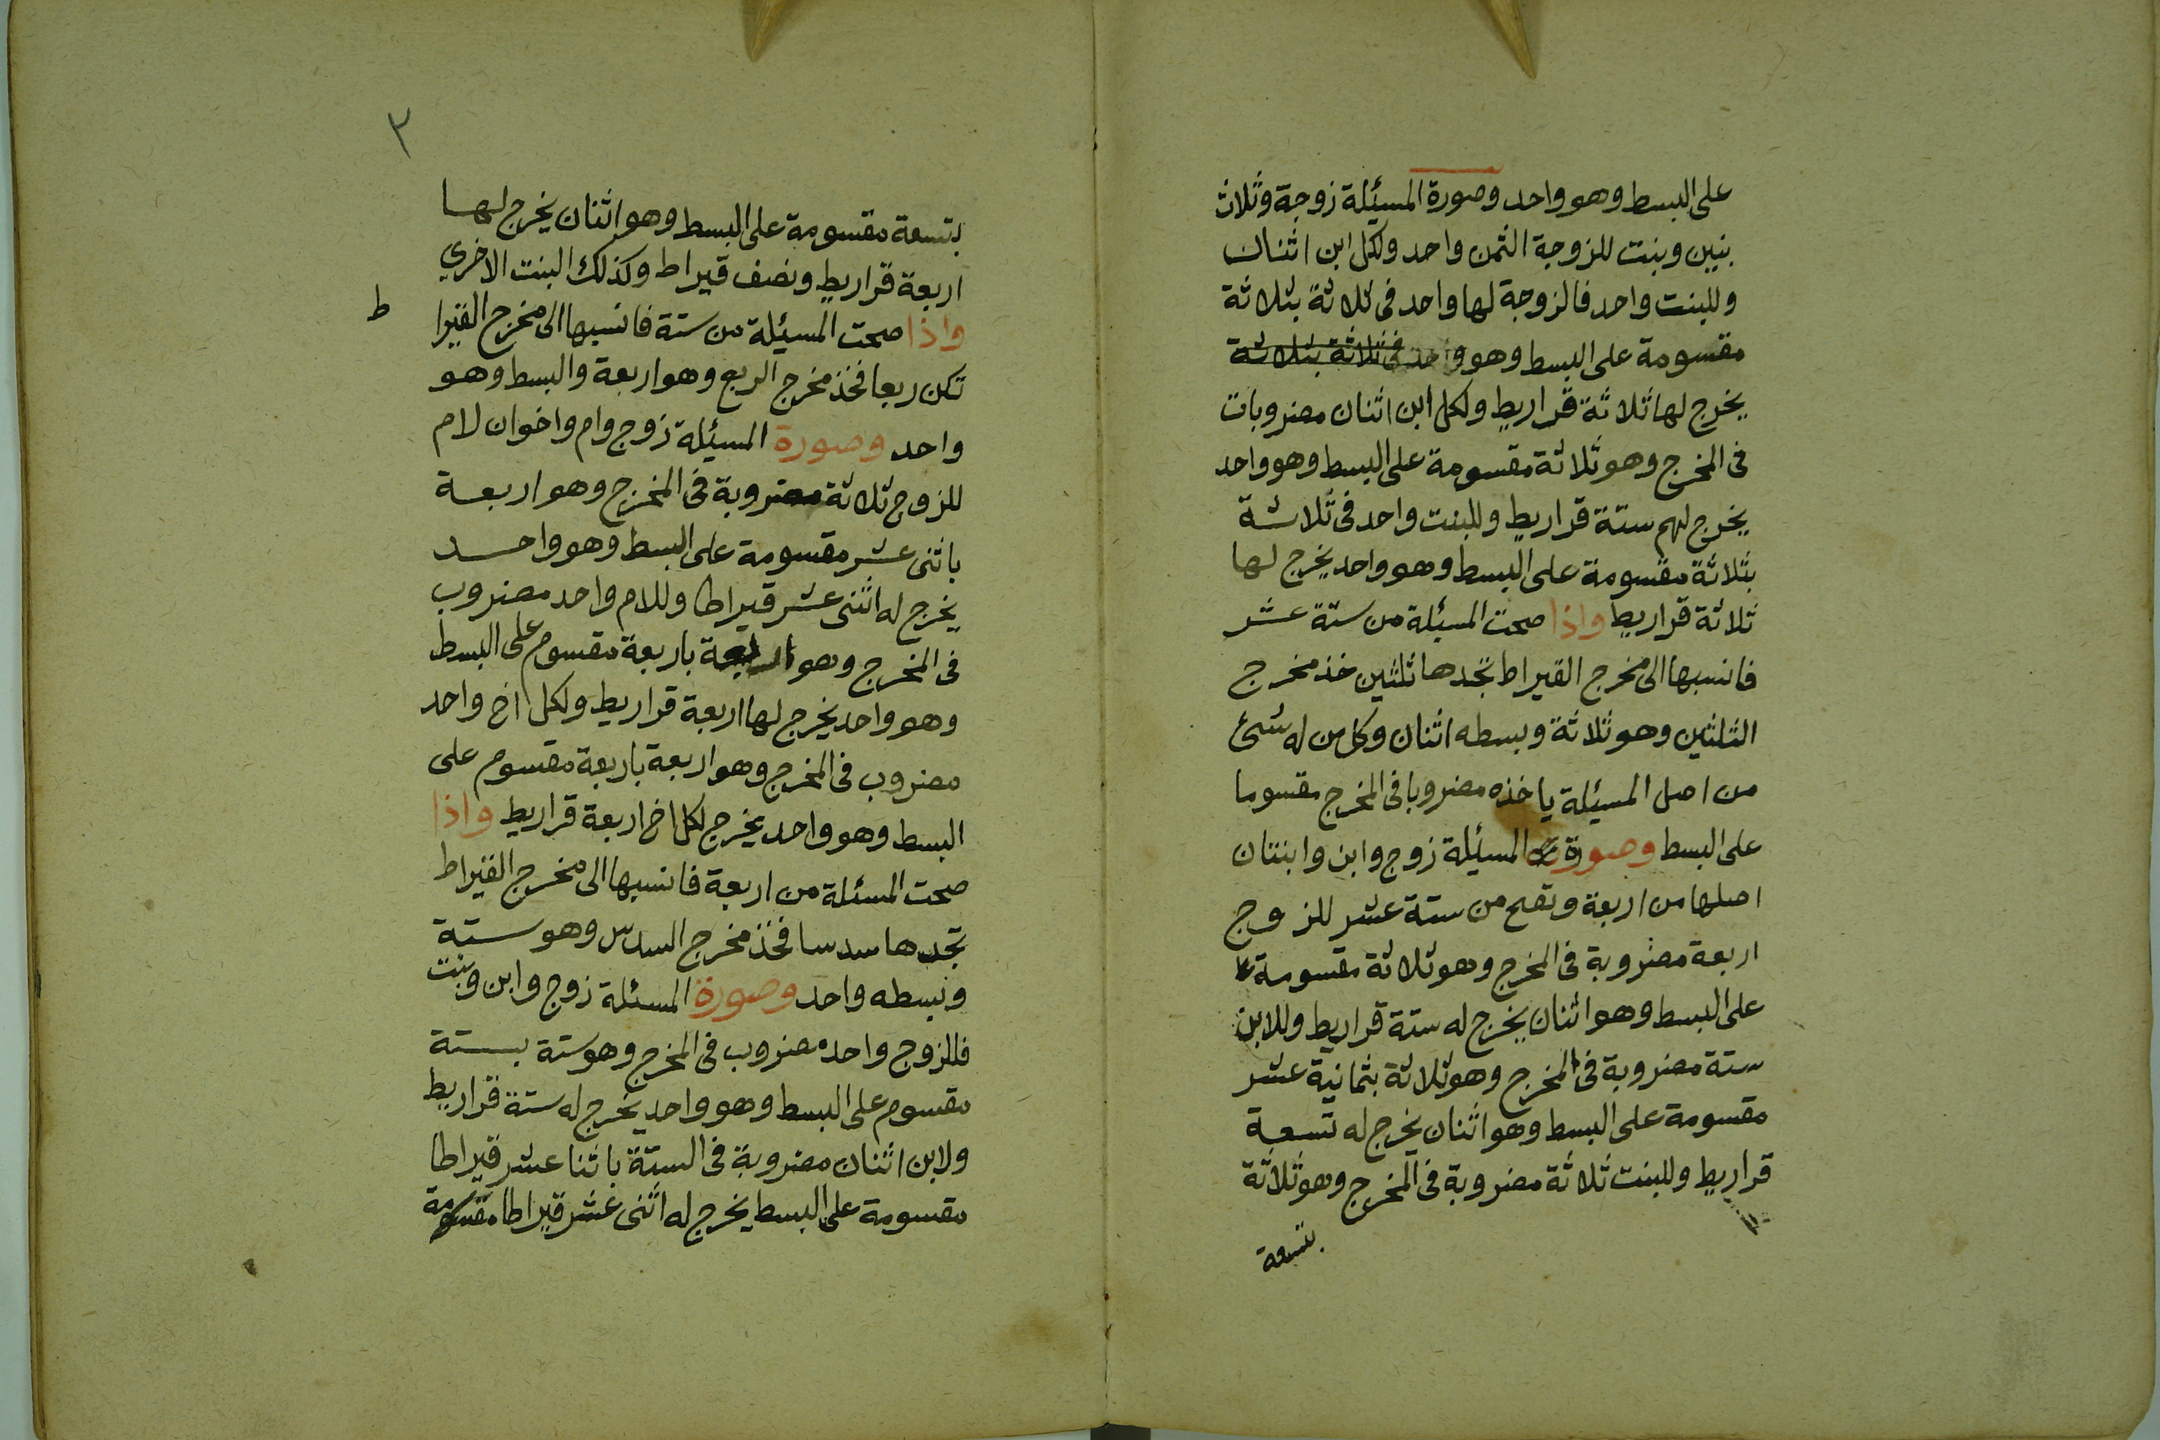 على البسط وهو واحد وصورة المسئلة زوجة وثلاث
بنين وبنت للزوجة الثمن واحد ولكل ابن اثنان
وللبنت واحد فالزوجة لها واحد فى ثلاثة بثلاثة
مقسومة على البسط وهو واحد فى ثلاثة بثلاثة
يخرج لها ثلاثة قراريط ولكل ابن اثنان مضروبات
فى المخرج وهو ثلاثة مقسومة على البسط وهو واحد
يخرج لهم ستة قراريط وللبنت واحد فى ثلاثة
بثلاثة مقسومة على البسط وهو واحد يخرج لها
ثلاثة قراريط واذا صحت المسئلة من ستة عشر
فانسبها الى مخرج القيراط تجدها ثلثين خذ مخرج
الثلثين وهو ثلاثة وبسطه اثنان وكل من له شئ
من اصل المسئلة ياخذه مضروبا فى المخرج مقسوما
على البسط وصورة المسئلة زوج وابن وابنتان
اصلها من اربعة وتصح من ستة عشر للزوج
اربعة مضروبة فى المخرج وهو ثلاثة مقسومة
على البسط وهو اثنان يخرج له ستة قراريط وللابن
ستة مضروبة فى المخرج وهو ثلاثة بثمانية عشر
مقسومة على البسط وهو اثنان يخرج له تسعة
قراريط وللبنت ثلاثة مضروبة فى المخرج وهو ثلاثة
بتسعة
٣
بتسعة مقسومة على البسط وهو اثنان يخرج لها
اربعة قراريط ونصف قيراط وكذلك البنت الاخرى
واذا صحت المسئلة من ستة فانسبها الى مخرج القيرا
ط
تكن ربعا فخذ مخرج الربع وهو اربعة والبسط وهو
واحد وصورة المسئلة زوج وام واخوان لام
للزوج ثلاثة مضروبة فى المخرج وهو اربعة
باثنى عشر مقسومة على البسط وهو واحد
يخرج له اثنى عشر قيراطا وللام واحد مضروب
فى المخرج وهو اربعة باربعة مقسوم على البسط
وهو واحد يخرج لها اربعة قراريط ولكل اخ واحد
مضروب فى المخرج وهو اربعة باربعة مقسوم على
البسط وهو واحد يخرج لكل اخ اربعة قراريط واذا
صحت المسئلة من اربعة فانسبها الى مخرج القيراط
تجدها سدسا فخذ مخرج السدس وهو ستة
وبسطه واحد وصورة المسئلة زوج وابن وبنت
فللزوج واحد مضروب فى المخرج وهو ستة بستة
مقسوم على البسط وهو واحد يخرج له ستة قراريط
ولابن اثنان مضروبة فى الستة باثنا عشر قيراطا
مقسومة على البسط يخرج له اثنى عشر قيراطا مقسومة